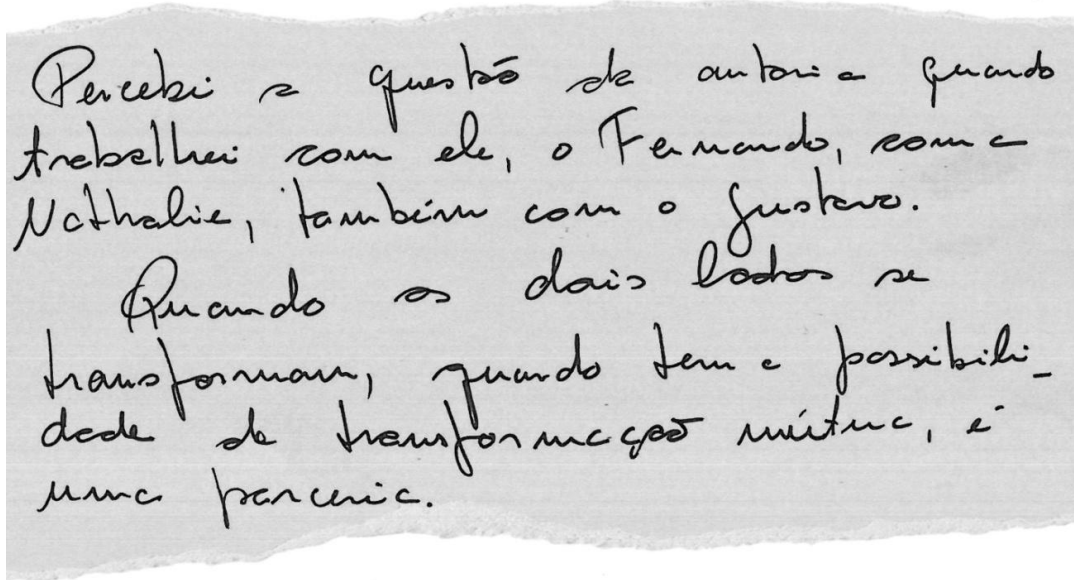 Percebi a questão de autoria quando
trabalhei com ele, o Fernando, com a
Nathalie, também com o Gustavo.
Quando os dois lados se
transformam, quando tem a possibili-
dade de transformação mútua, é
uma parceria.